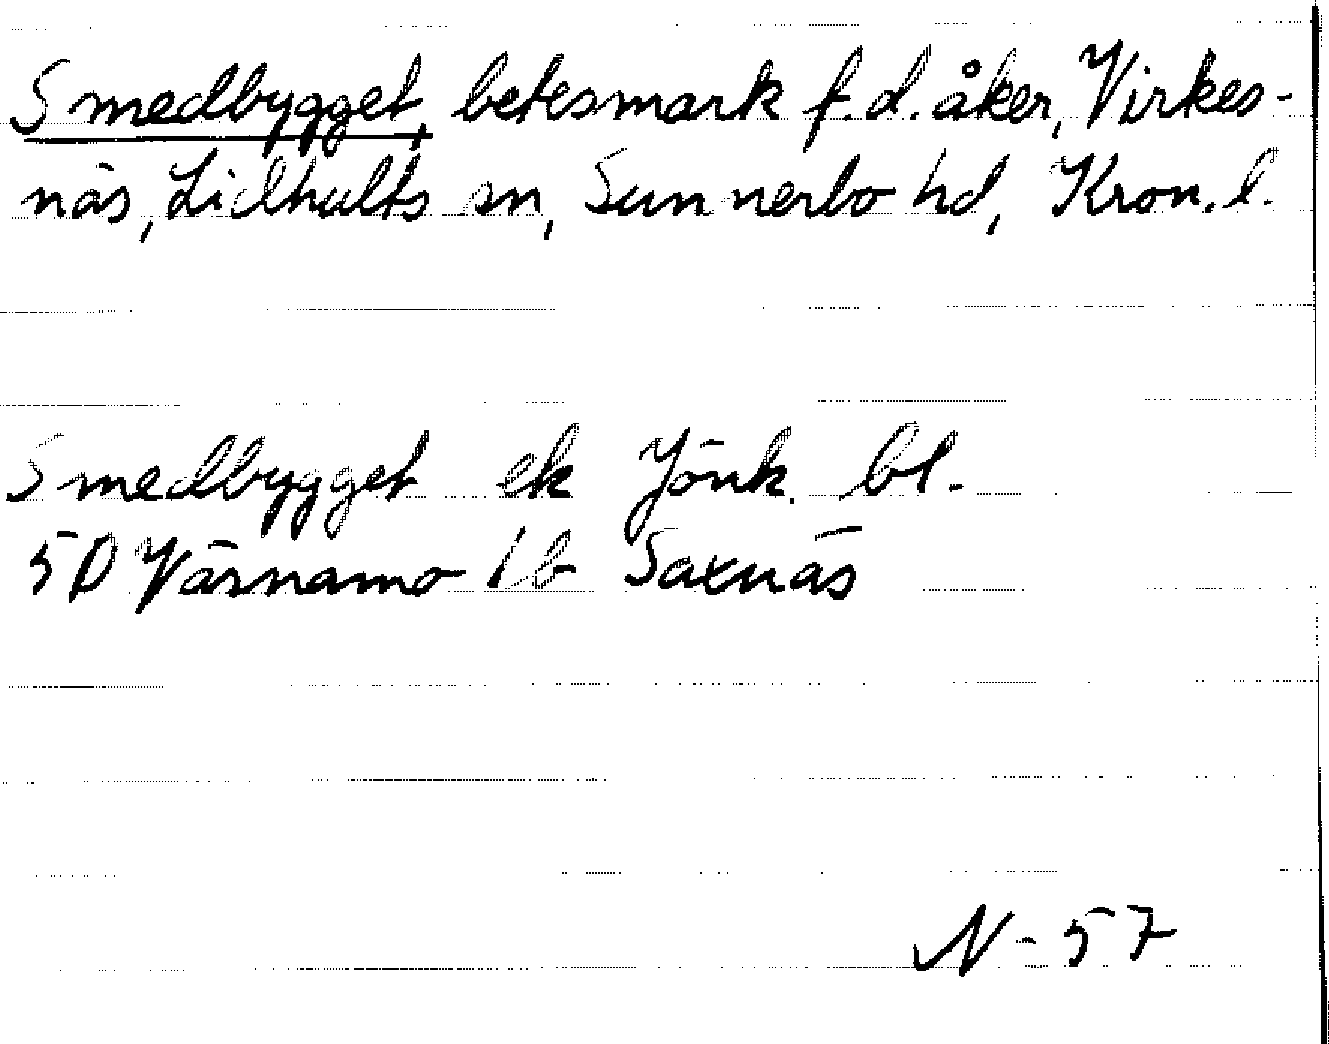 Smedbygget, betesmark f.d. åker, Virkes-
näs, Lidhults sn, Sunnerbo hd, Kron. l.
Smedbygget ek Jönk. bl.
5D Värnamo 1b Saxnäs
N-57